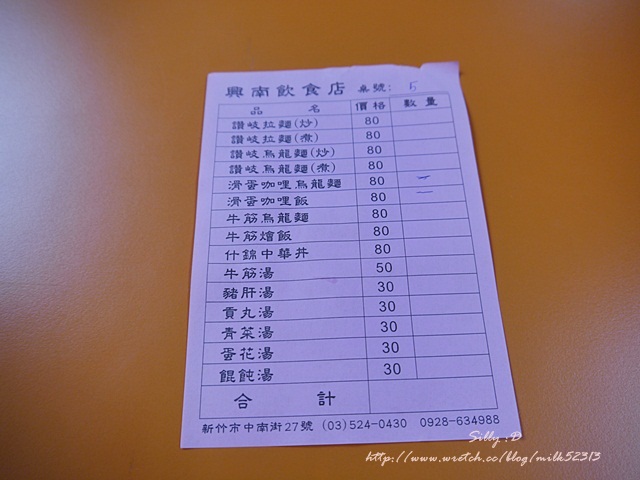 興南飲食店 桌號: 5
品名 價格 數量
讚岐拉麵(炒) 80
讚岐拉麵(煮) 80
讚岐烏龍麵(炒) 80
讚岐烏龍麵(煮) 80
滑蛋咖哩烏龍麵 80 一
滑蛋咖哩飯 80 一
牛筋烏龍麵 80
牛筋燴飯 80
什錦中華丼 80
牛筋湯 50
豬肝湯 30
貢丸湯 30
青菜湯 30
蛋花湯 30
餛飩湯 30
合計
新竹市中南街27號 (03)524-0430 0928-634988
Silly :D
http://www.wretch.cc/blog/milk52313